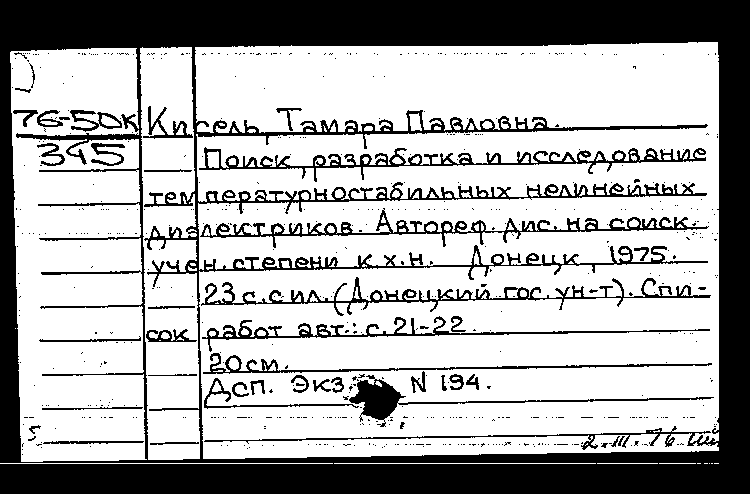 76-50к Кисель, Тамара Павловна.
345 Поиск, разработка и исследование
температурностабильных нелинейных
диэлектриков. Автореф. дис. на соиск.
учен. степени к.х.н. Донецк, 1975.
23 с. с ил. (Донецкий гос. ун-т). Спи-
сок работ авт.: с. 21-22.
20см.
Дсп. Экз. N 194.
5
2.III.76